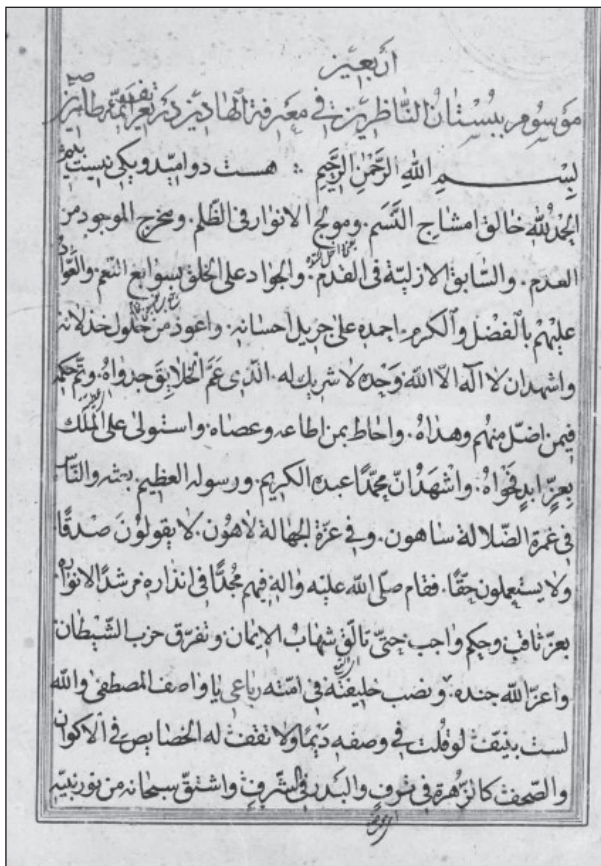 اربعین
موسوم ببستان الناظرین فی معرفة الهادین
بسم الله الرحمن الرحیم ؞ هست دو امید و یکی نیست بیم
الحمد لله خالق امشاج النسم. ومولج الانوار فی الظلم. ومخرج الموجود من
العدم. والسابق الازلیة فی القدم. والجواد علی الخلق بسوابغ النعم. والعواد
علیهم بالفضل والکرم. احمده علی جزیل احسانه. واعوذ من حلول خذلانه
واشهد ان لا اله الا الله وحده لا شریک له. الذی عم الخلایق جدواه. وتم حکمه
فیمن اضل منهم وهداه. واحاط بمن اطاعه وعصاه. واستولی علی الملک
بعز ابد فحواه. واشهد ان محمدا عبده الکریم. ورسوله العظیم. بعثه والناس
فی غمرة الضلالة ساهون. وفی غرة الجهالة لاهون. لا یقولون صدقا
ولا یستعملون حقا. فقام صلی الله علیه واله فیهم مجدا فی انذاره مرشدا لانواره
بعز ثاقب وحکم واجب حتی تالق شهاب الایمان وتفرق حزب الشیطان
واعز الله جنده. ونصب خلیفته فی امته رباعی یا واصف المصطفی والله
لست بیفت لو قلت فی وصفه دیما ولا نقفت له الخصایص فی الاکوان
والصحف کالزهرة فی ترف والبدر فی الشرف واشتق سبحانه من نور نبیه